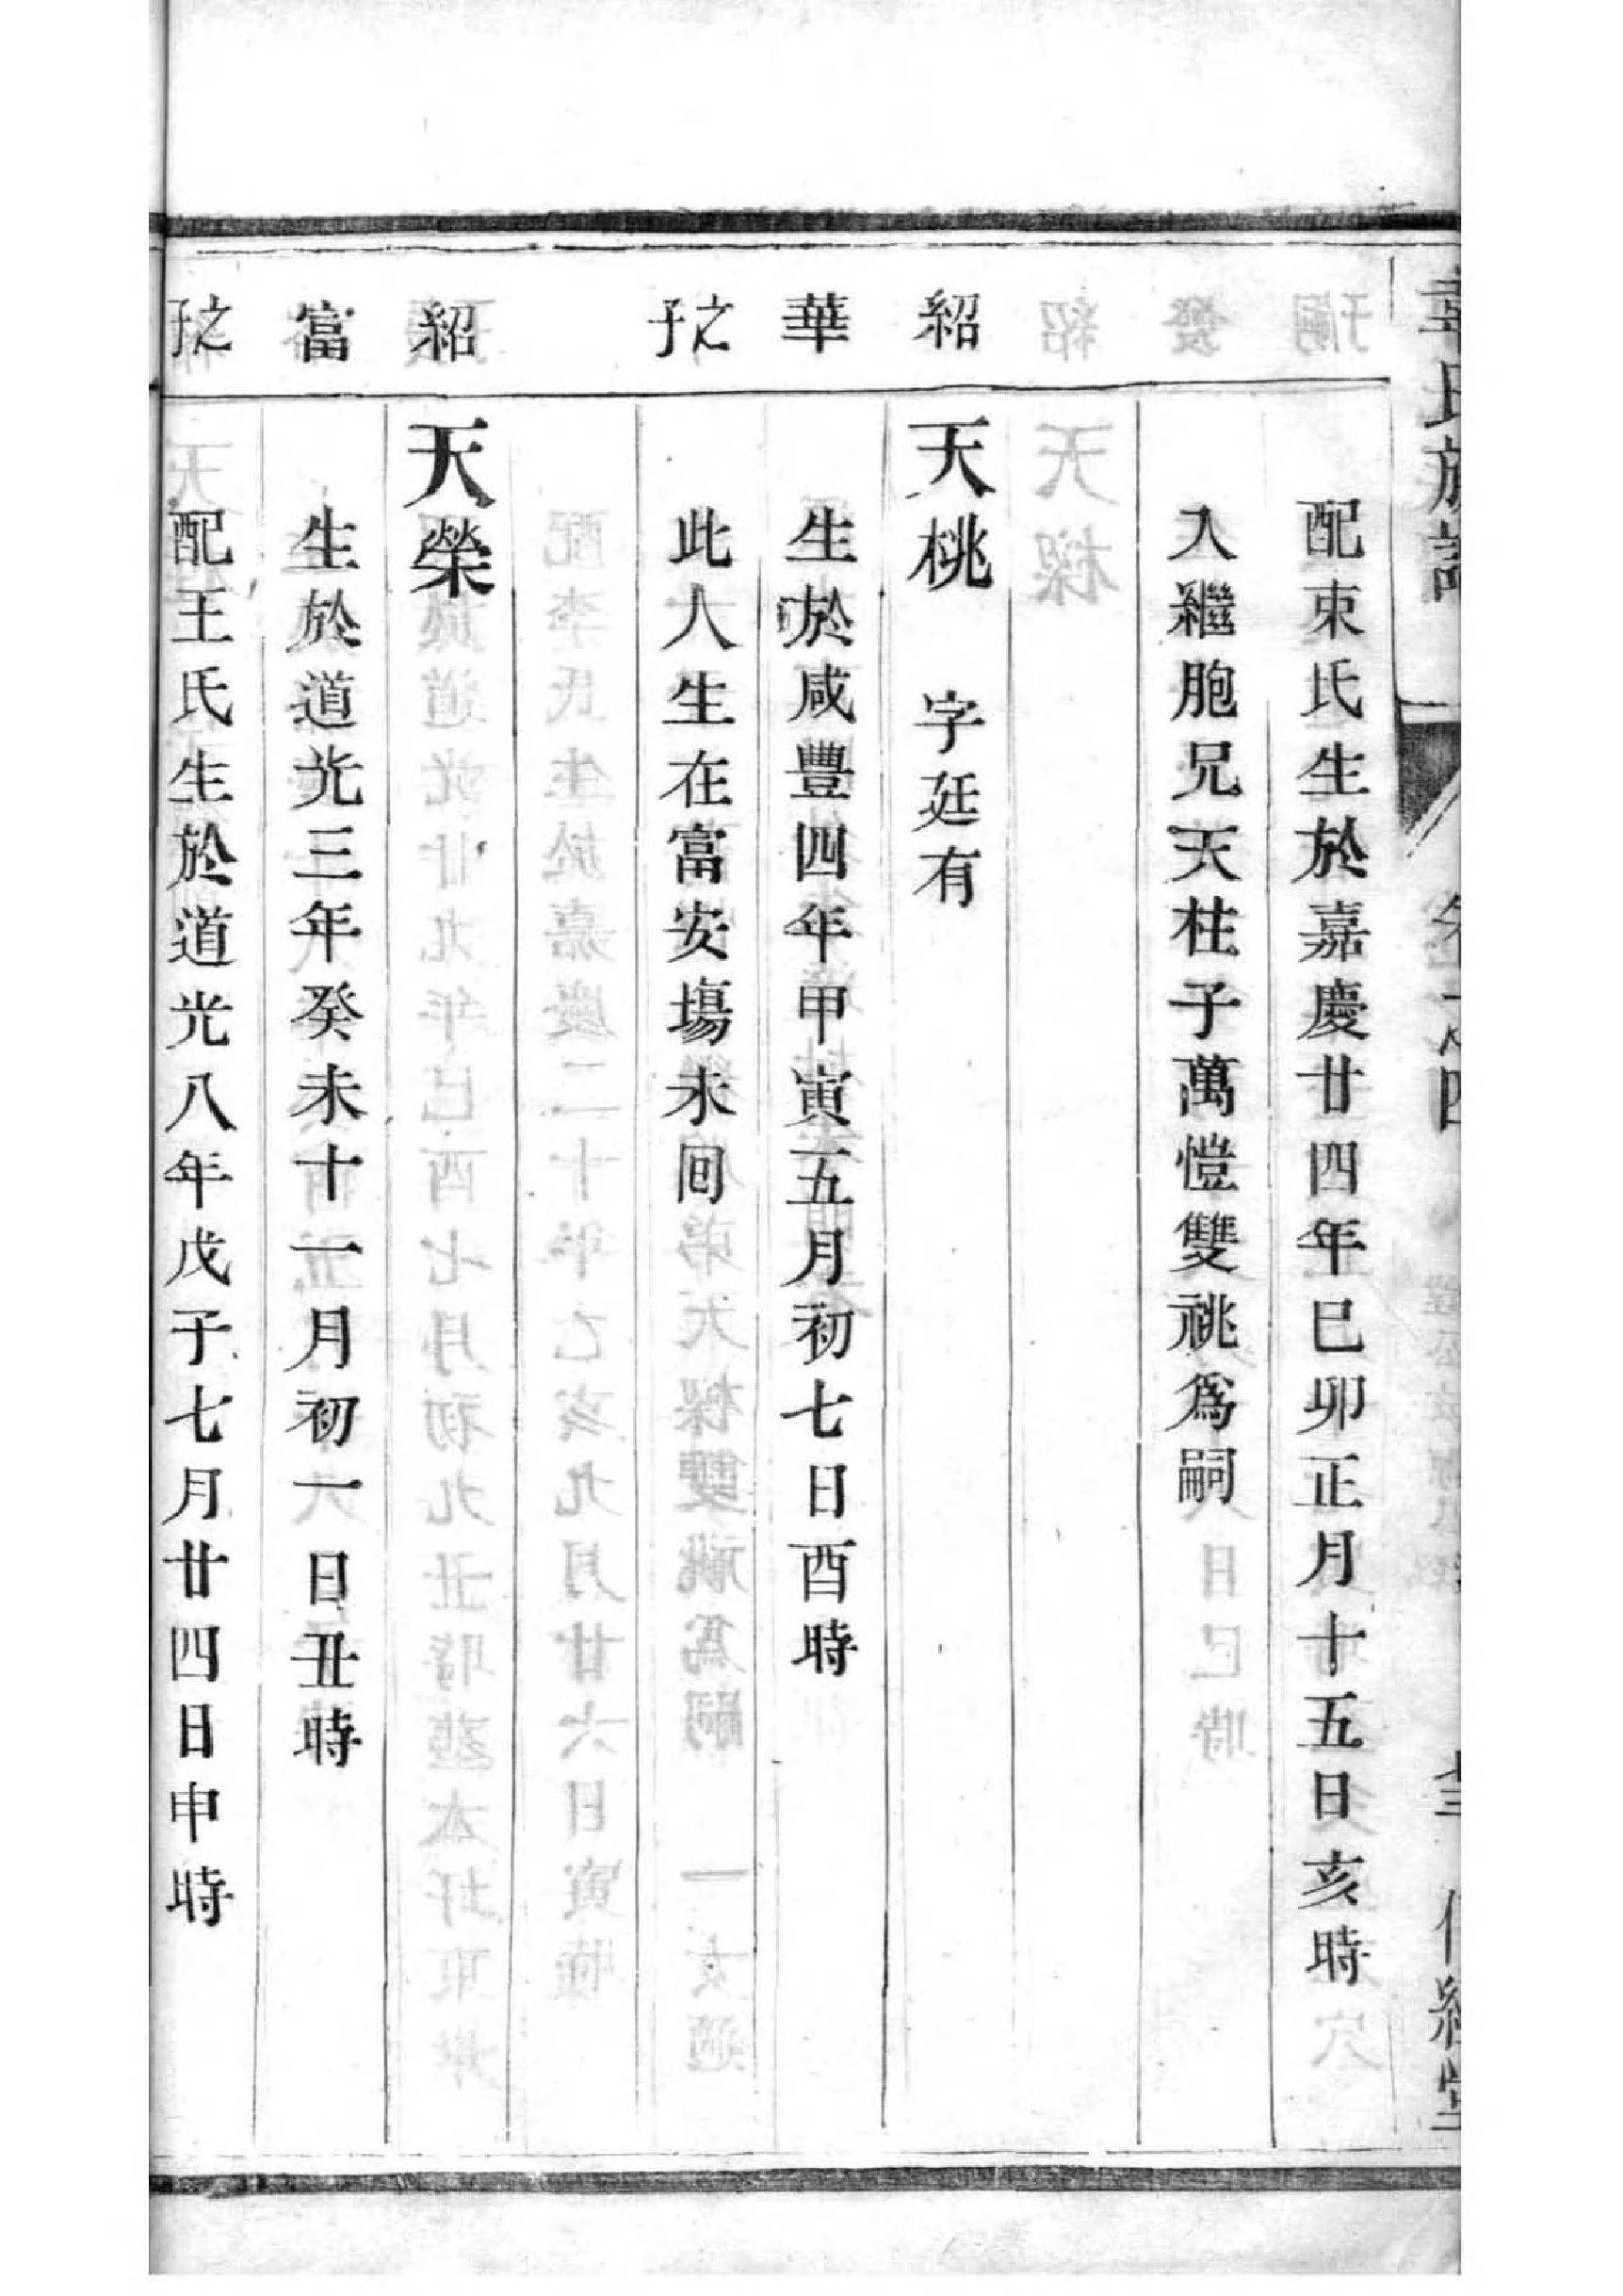 配束氏生於嘉慶廿四年巳卯正月十五日亥時
入繼胞兄天柱子萬愷雙祧爲嗣
紹
天桃 字廷有
華
生於咸豐四年甲寅五月初七日酉時
之子
此人生在富安塲未囘
紹
天榮
富
生於道光三年癸未十一月初一日丑時
之子
配王氏生於道光八年戊子七月廿四日申時